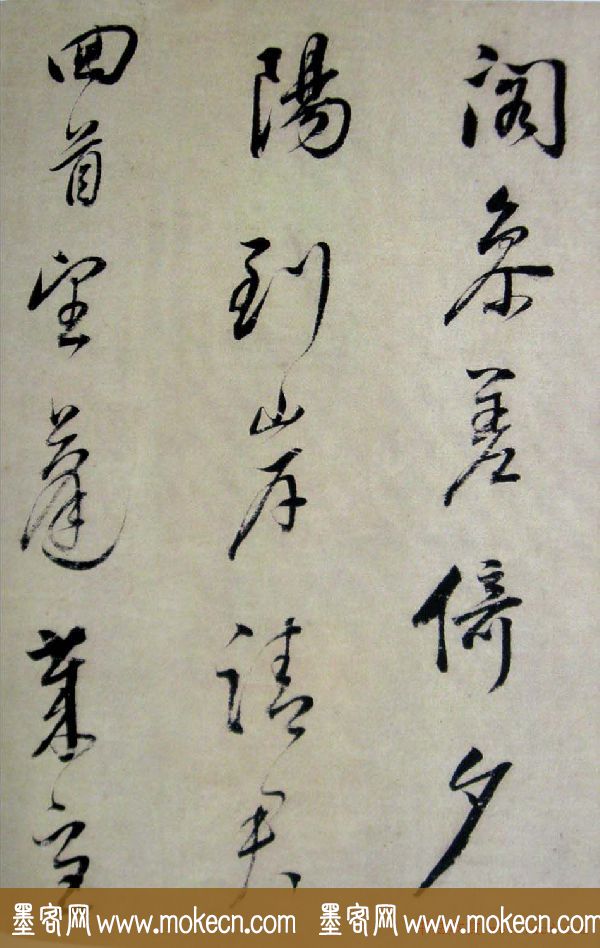 閣參差倚夕
陽到岸請君
回首望蓬萊宮
墨客网 www.mokecn.com 墨客网 www.mokecn.com